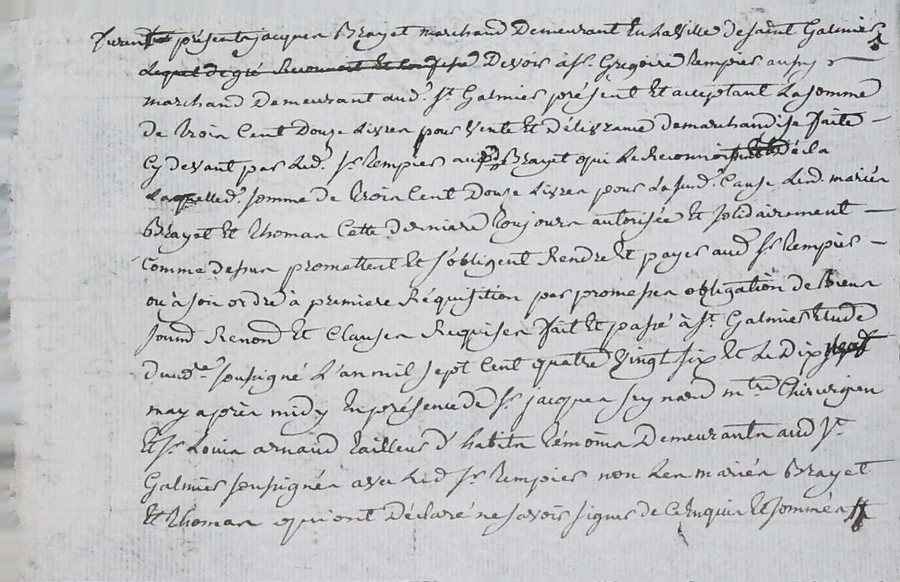 présents jacques Brayet marchand Demeurant En La Ville de saint Galmier
Lequel de gré Reconnoit et Confesse Devoir à Sr. Gregoire Rempier aussy
marchand Demeurant aud. St. Galmier présent Et acceptant La somme
De trois Cent Douze Livres pour Vente Et Délivrance de marchandise faite
Cy devant par Led. Sr. Rempier aud. Brayet qui Le Reconnoit
Laquelle d. somme de trois Cent Douze Livres pour La susd. Cause Lesd. mariés
Brayet Et thomas Cette derniere toujours autorisée Et solidairement
Comme dessus promettent Et s'obligent Rendre Et payer aud. Sr. Rempier
ou à son ordre à premiere Réquisition par promesses obligation de Biens
soumd. Renond. Et Clauses Requises fait Et passé à St. Galmier Etude
du nore. soussigné L'an mil sept Cent quatre vingt six Et Le Dix
may après midy En présence de Sr. jacques mtre. Chirurgien
Et Sr. Louis arnaud tailleur d'habits témoins Demeurants aud. St.
Galmier soussignés avec Led. Sr. Rempier non Les mariés Brayet
Et thomas qui ont Déclaré ne savoir signer de Ce Enquis Et sommés